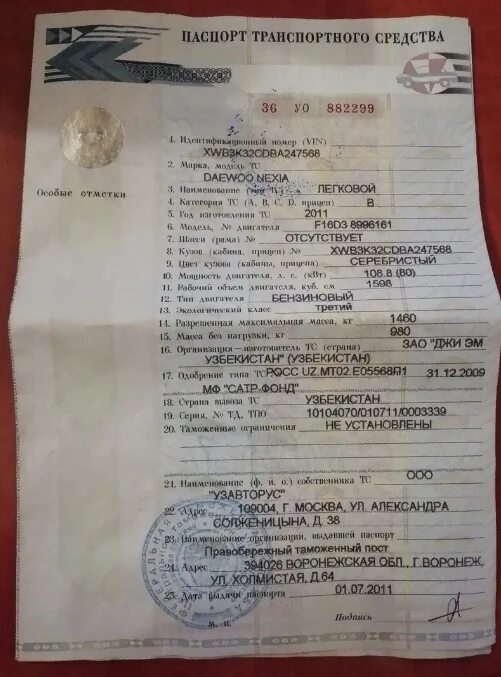 ПАСПОРТ ТРАНСПОРТНОГО СРЕДСТВА
36 УО 882299
Особые отметки
1. Идентификационный номер (VIN)
XWB3K32CDBA247568
2. Марка, модель ТС
DAEWOO NEXIA
3. Наименование (тип ТС) ЛЕГКОВОЙ
4. Категория ТС (А, В, С, D, прицеп) В
5. Год изготовления ТС 2011
6. Модель, № двигателя F16D3 8996161
7. Шасси (рама) № ОТСУТСТВУЕТ
8. Кузов (кабина, прицеп) № XWB3K32CDBA247568
9. Цвет кузова (кабины, прицепа) СЕРЕБРИСТЫЙ
10. Мощность двигателя, л. с. (кВт) 108.8 (80)
11. Рабочий объем двигателя, куб. см 1598
12. Тип двигателя БЕНЗИНОВЫЙ
13. Экологический класс третий
14. Разрешенная максимальная масса, кг 1460
15. Масса без нагрузки, кг 980
16. Организация-изготовитель ТС (страна) ЗАО "ДЖИ ЭМ
УЗБЕКИСТАН" (УЗБЕКИСТАН)
17. Одобрение типа ТС РОСС UZ.МТ02.Е05568П1 31.12.2009
МФ "САТР-ФОНД"
18. Страна вывоза ТС УЗБЕКИСТАН
19. Серия, № ТД, ТПО 10104070/010711/0003339
20. Таможенные ограничения НЕ УСТАНОВЛЕНЫ
21. Наименование (ф. и. о.) собственника ТС ООО
"УЗАВТОРУС"
22. Адрес 109004, Г. МОСКВА, УЛ. АЛЕКСАНДРА
СОЛЖЕНИЦЫНА, Д. 38
23. Наименование организации, выдавшей паспорт
Правобережный таможенный пост
24. Адрес 394026 ВОРОНЕЖСКАЯ ОБЛ., Г. ВОРОНЕЖ,
УЛ. ХОЛМИСТАЯ, Д.64
25. Дата выдачи паспорта 01.07.2011
М. П. Подпись